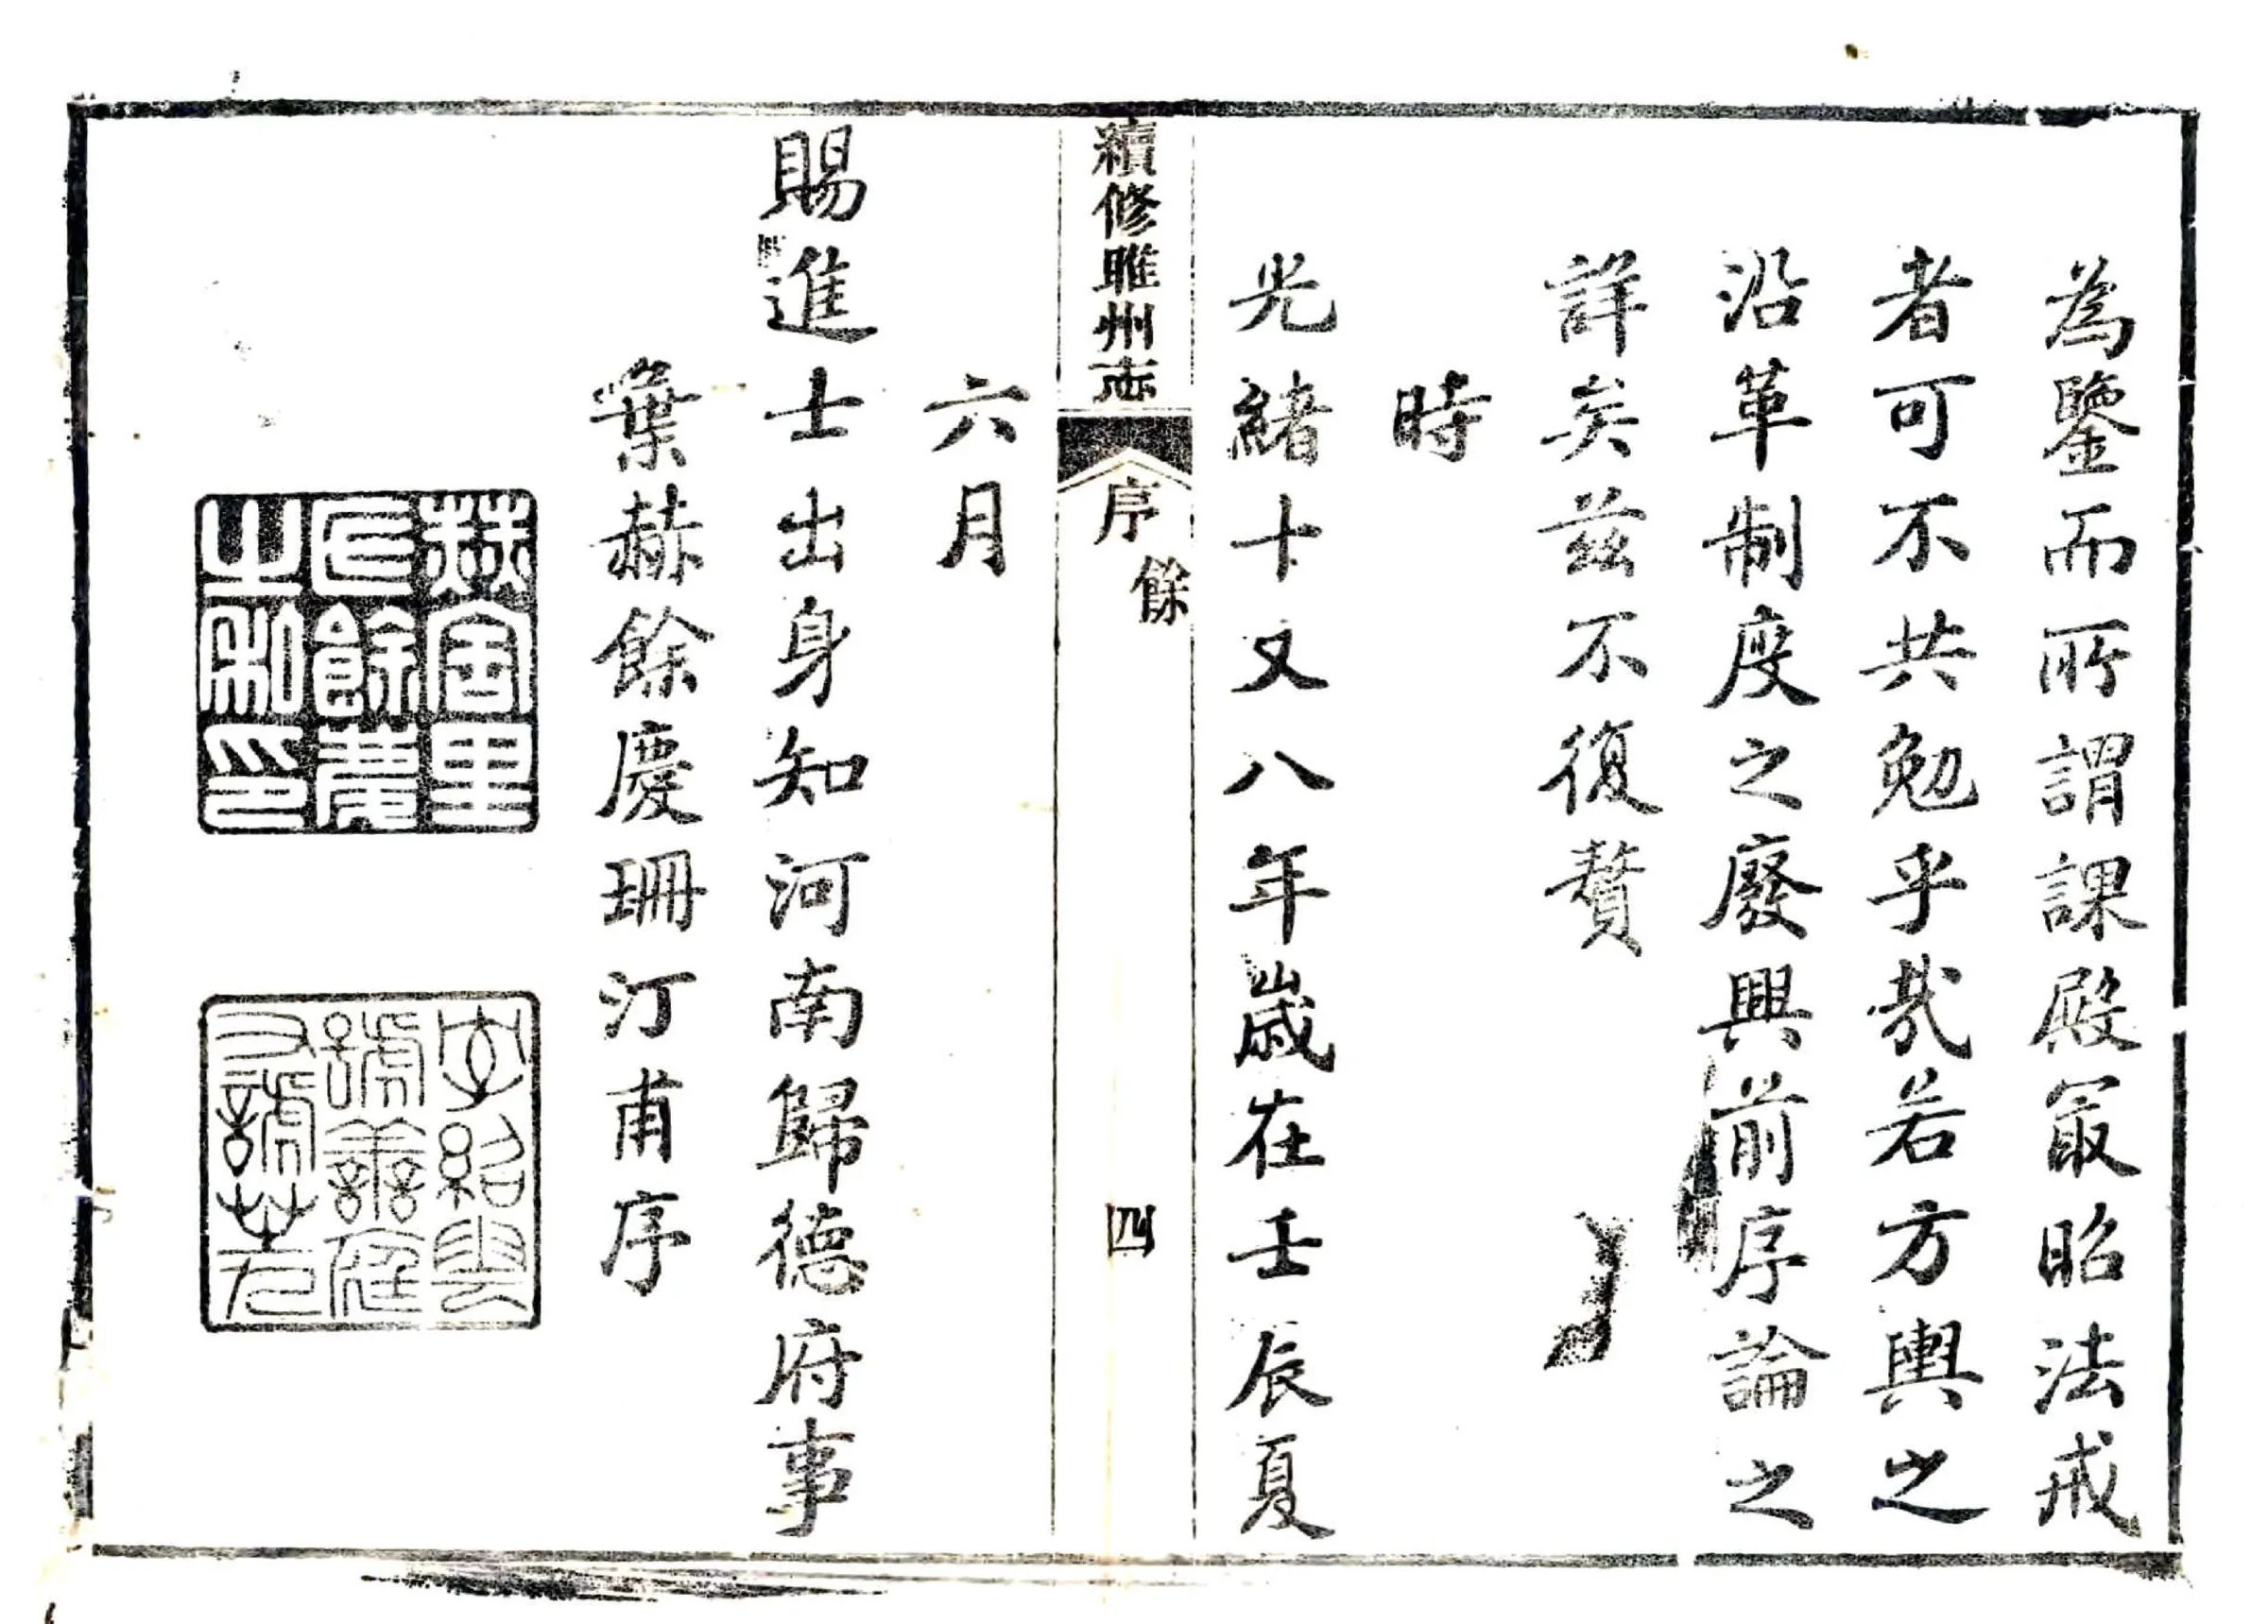 為鑒而所謂課殿冣昭法戒
者可不共勉乎哉若方輿之
沿革制度之廢興前序論之
詳矣茲不復贅
時
光緒十又八年歲在壬辰夏
續修睢州志
序
餘
四
六月
賜進士出身知河南歸德府事
葉赫餘慶珊汀甫序
赫舍里
氏餘慶
之私印
字紹雲
號善庭
又號